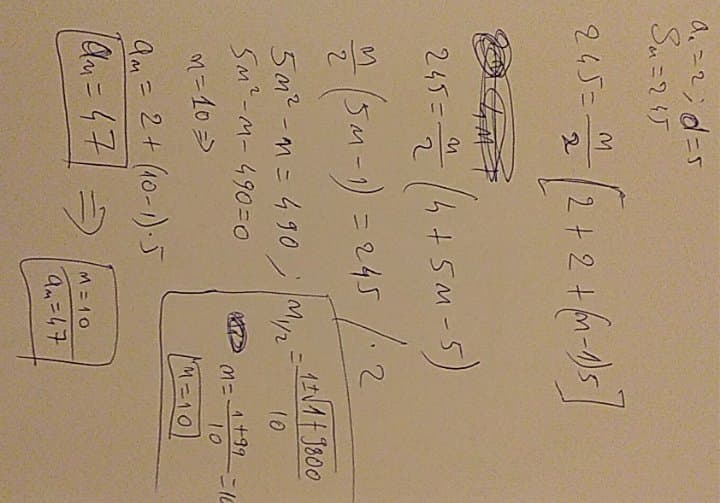 a₁=2; d=5
Sₙ=245
245 = n/2 [2+2+(n-1)5]
245 = n/2 (4+5n-5)
n/2 (5n-1) = 245 /·2
5n²-n=490;
5n²-n-490=0
n=10⇒
n₁/₂ = (1±√1+9800)/10
n = (1+99)/10 = 10
n=10
aₙ = 2+(10-1)·5
aₙ=47 ⇒
n=10
aₙ=47